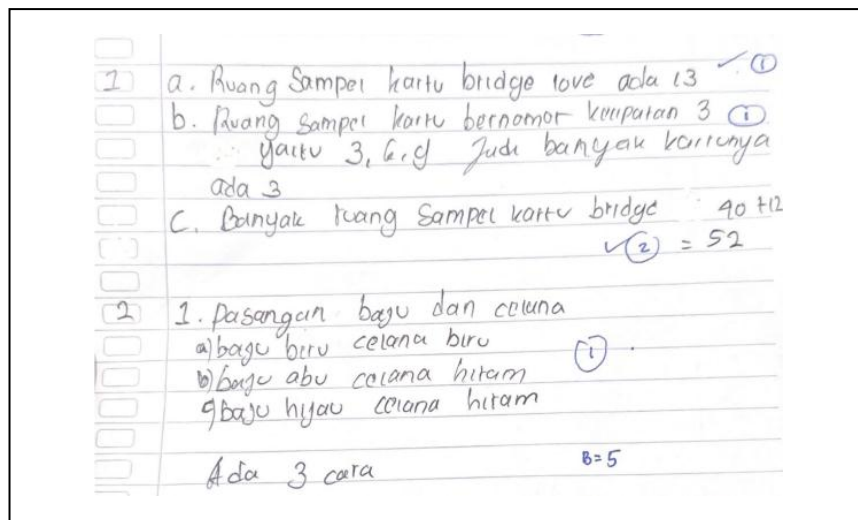 1 a. Ruang Sampel kartu bridge love ada 13 ✓ ①
b. Ruang Sampel kartu bernomor kelipatan 3 ①
yaitu 3, 6, 9 Jadi banyak kartunya
ada 3
C. Banyak ruang Sampel kartu bridge 40 + 12
✓ ② = 52
2 1. pasangan baju dan celana
a) baju biru celana biru ①
b) baju abu celana hitam
c) baju hijau celana hitam
Ada 3 cara B = 5